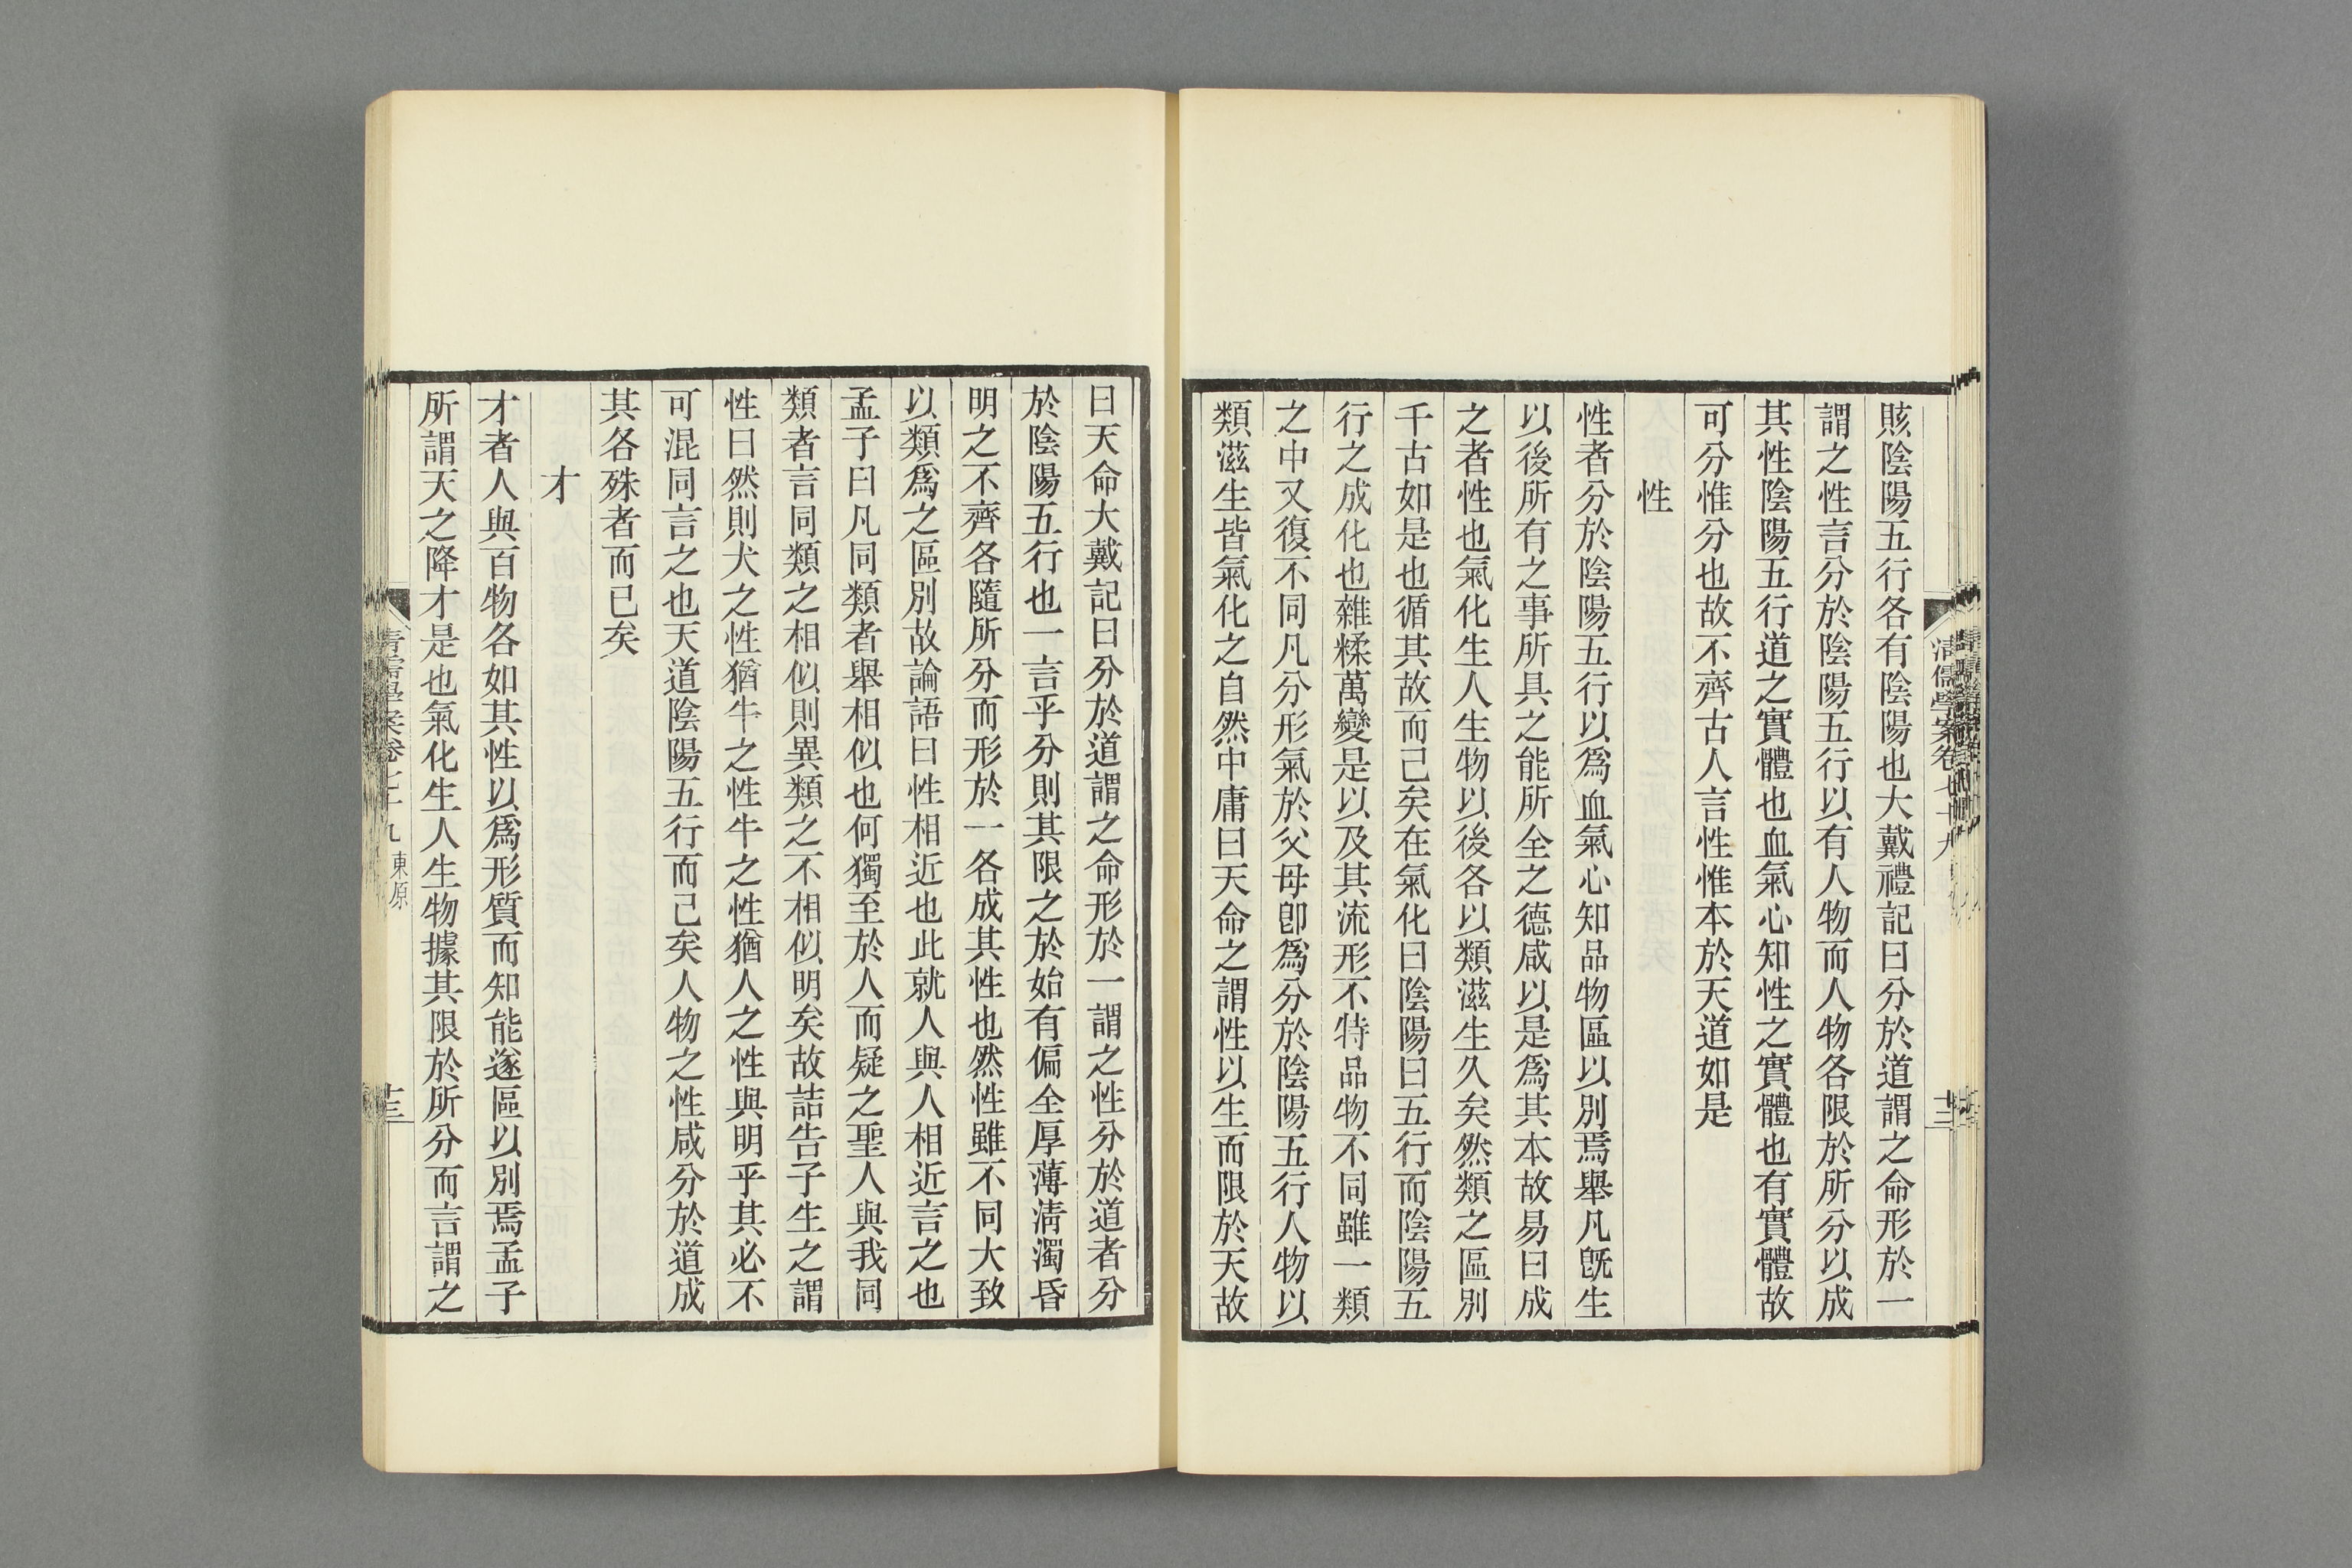 賅陰陽五行各有陰陽也大戴禮記曰分於道謂之命形於一
謂之性言分於陰陽五行以有人物而人物各限於所分以成
其性陰陽五行道之實體也血氣心知性之實體也有實體故
可分惟分也故不齊古人言性惟本於天道如是
性
性者分於陰陽五行以爲血氣心知品物區以別焉舉凡旣生
以後所有之事所具之能所全之德咸以是爲其本故易曰成
之者性也氣化生人生物以後各以類滋生久矣然類之區別
千古如是也循其故而已矣在氣化曰陰陽曰五行而陰陽五
行之成化也雜糅萬變是以及其流形不特品物不同雖一類
之中又復不同凡分形氣於父母卽爲分於陰陽五行人物以
類滋生皆氣化之自然中庸曰天命之謂性以生而限於天故
清儒學案卷七十九
曰天命大戴記曰分於道謂之命形於一謂之性分於道者分
於陰陽五行也一言乎分則其限之於始有偏全厚薄淸濁昏
明之不齊各隨所分而形於一各成其性也然性雖不同大致
以類爲之區別故論語曰性相近也此就人與人相近言之也
孟子曰凡同類者舉相似也何獨至於人而疑之聖人與我同
類者言同類之相似則異類之不相似明矣故詰告子生之謂
性曰然則犬之性猶牛之性牛之性猶人之性與明乎其必不
可混同言之也天道陰陽五行而已矣人物之性咸分於道成
其各殊者而已矣
才
才者人與百物各如其性以爲形質而知能遂區以別焉孟子
所謂天之降才是也氣化生人生物據其限於所分而言謂之
清儒學案卷七十九 東原 廿三